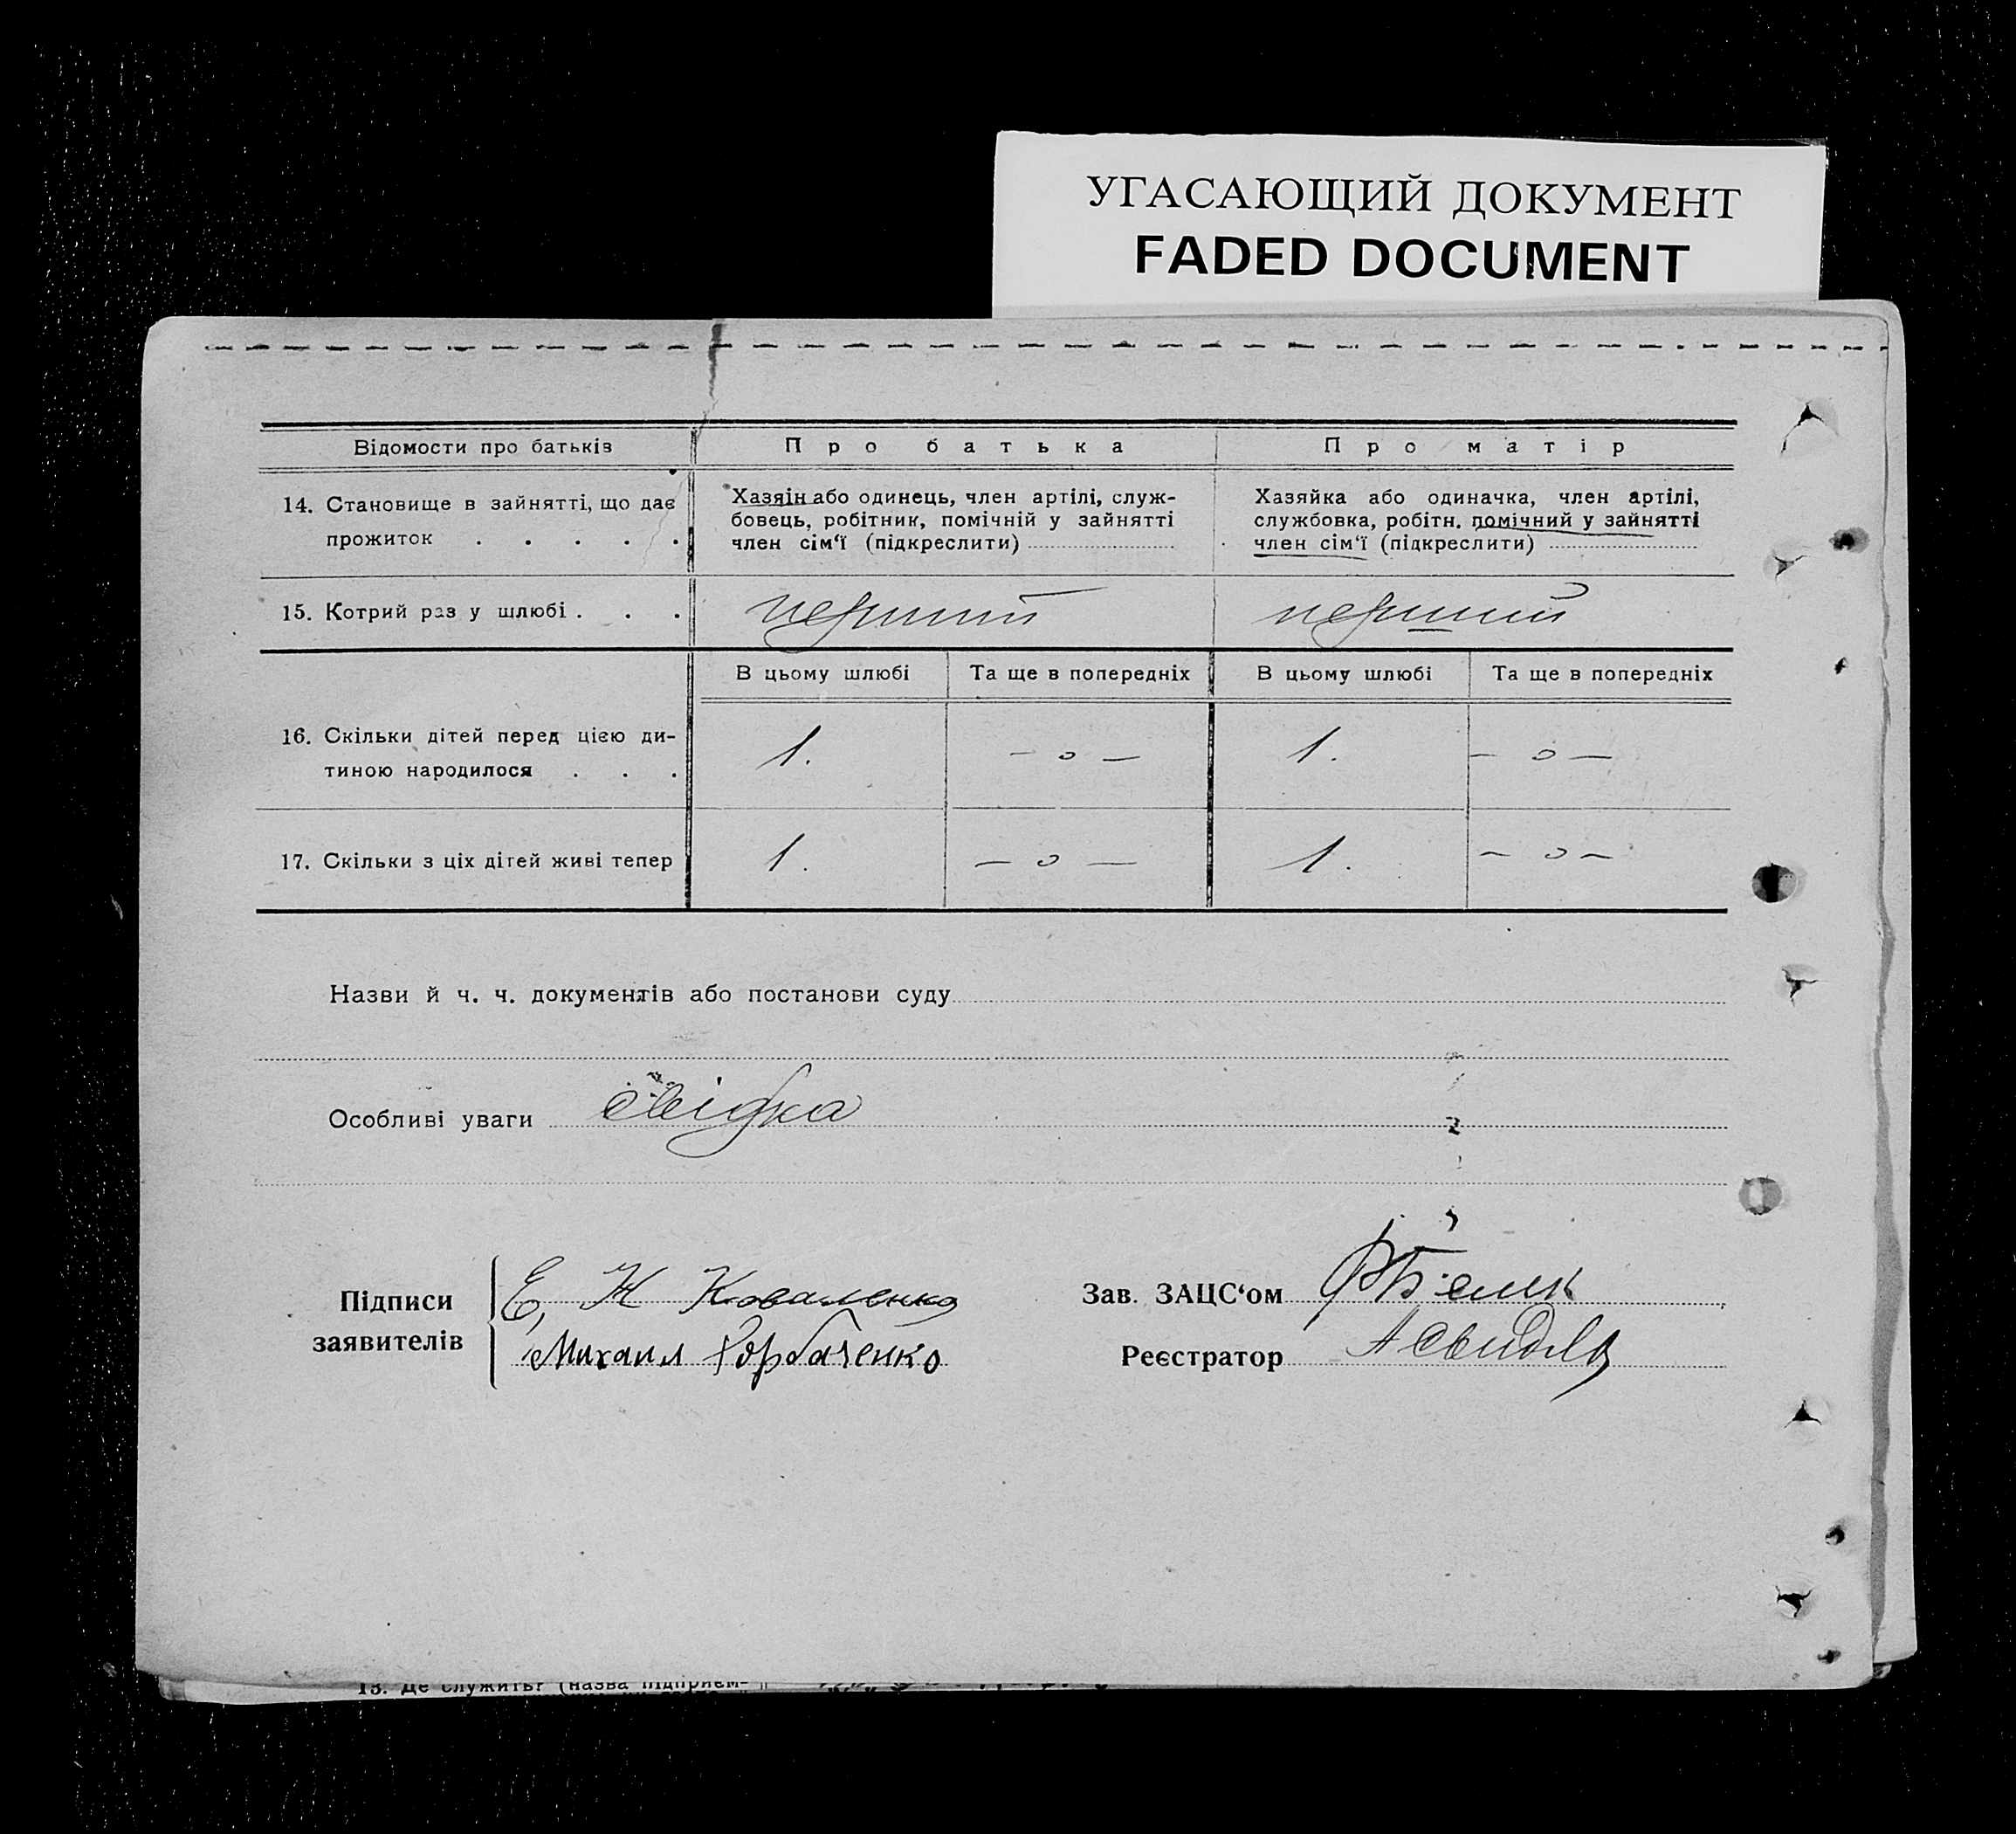 УГАСАЮЩИЙ ДОКУМЕНТ
FADED DOCUMENT
Відомости про батьків
Про батька
Про матір
14. Становище в зайнятті, що дає
прожиток . . . . .
Хазяін або одинець, член артілі, служ-
бовець, робітник, помічній у зайнятті
член сім‘ї (підкреслити)
Хазяйка або одиначка, член артілі,
службовка, робітн. помічний у зайнятті
член сім‘ї (підкреслити)
15. Котрий раз у шлюбі . . .
перший
перший
В цьому шлюбі
Та ще в попередніх
В цьому шлюбі
Та ще в попередніх
16. Скільки дітей перед цією ди-
тиною народилося . . .
1.
— о —
1.
— о —
17. Скільки з ціх дітей живі тепер
1.
— о —
1.
— о —
Назви й ч. ч. документів або постанови суду
Особливі уваги свідка
Підписи
заявителів
Е, Н Коваленко
Михаил Горбаченко
Зав. ЗАЦС‘ом
Реєстратор
13. Де служить? (назва підприєм-